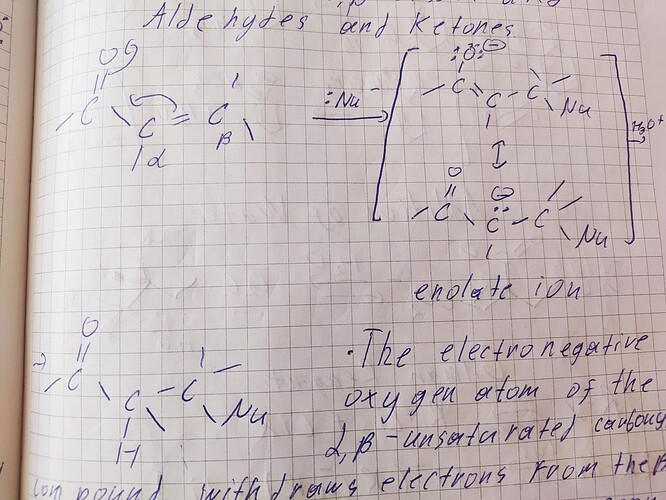 Aldehydes and Ketones
O
C
C = C
α β
:Nu⁻
:Ö:⊖
C = C - C
Nu
H₃O⁺
O
C - C̈⊖ - C
Nu
enolate ion
O
C
C - C
Nu
H
· The electronegative
oxygen atom of the
α,β-unsaturated carbonyl
compound withdraws electrons from the β